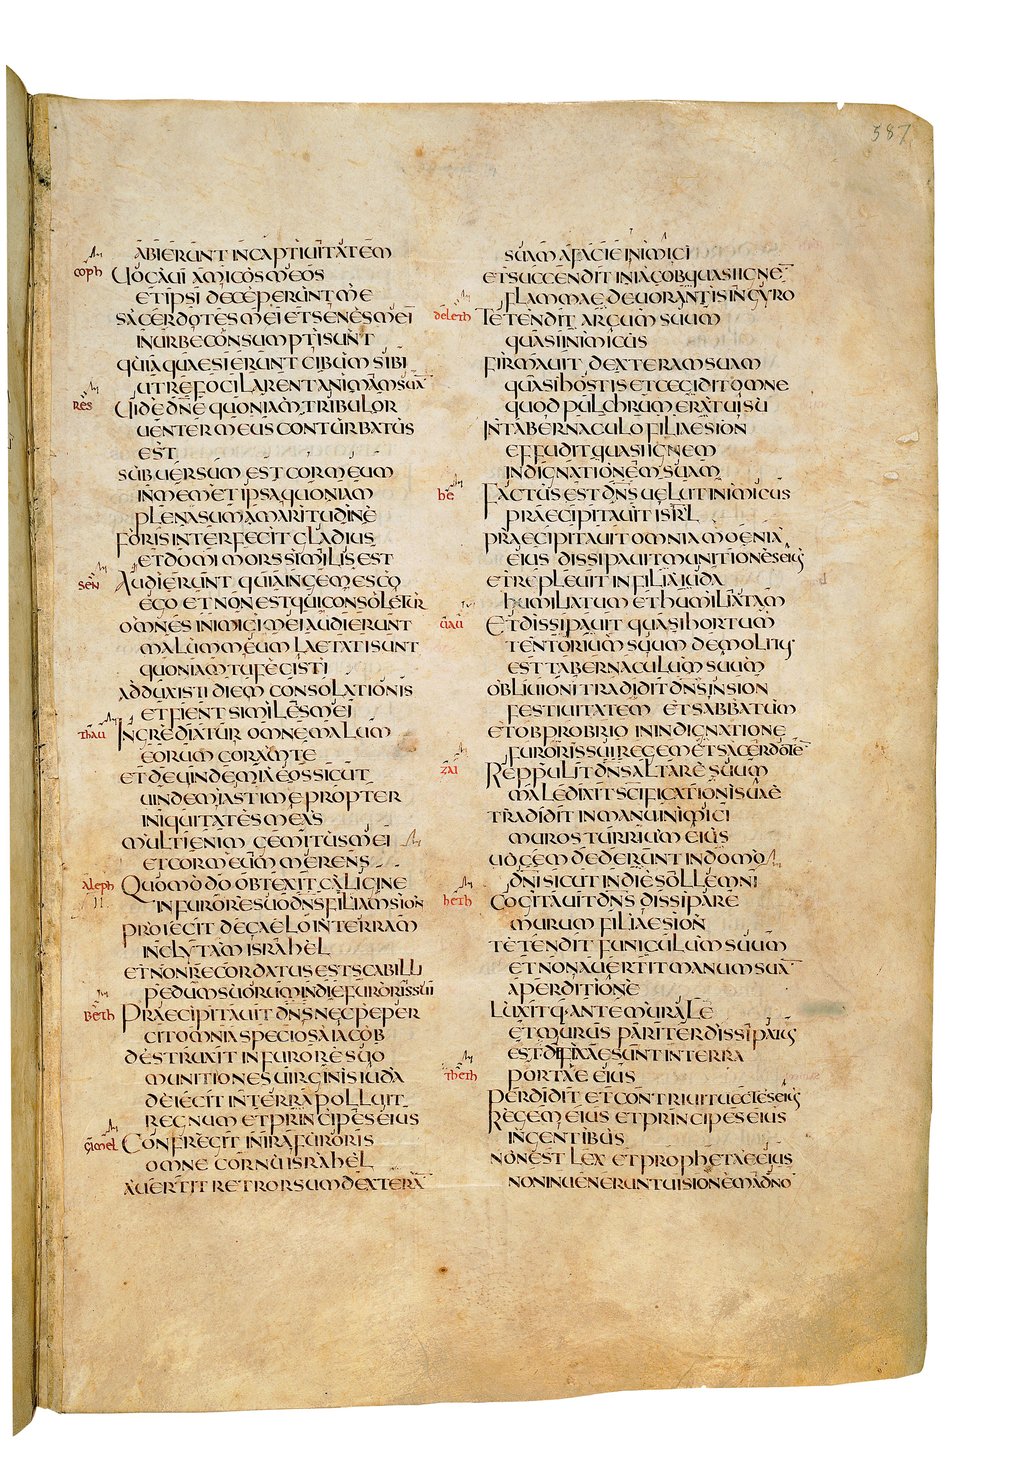 587
ABIERUNT INCAPTIUITATEM
coph UOCAUI AMICOSMEOS
ETIPSI DECEPERUNTME
SACERDOTESMEI ETSENESMEI
INURBECONSUMPTISUNT
QUIAQUAESIERUNT CIBUMSIBI
UTREFOCILARENTANIMAMSUĀ
RES UIDEDN̄E QUONIAMTRIBULOR
UENTERMEUSCONTURBATUS
EST
SUBUERSUM EST CORMEUM
INMEMETIPSAQUONIAM
PLENASUMAMARITUDINE
FORISINTERFECITGLADIUS
ETDOMIMORSSIMILISEST
SEN AUDIERUNT QUIAINGEMESCO
EGO ETNONESTQUICONSOLETUR
OMNES INIMICIMEIAUDIERUNT
MALUMMEUM LAETATISUNT
QUONIAMTUFECISTI
ADDUXISTI DIEM CONSOLATIONIS
ETFIENTSIMILESMEI
THAU INGREDIATUR OMNEMALUM
EORUM CORAMTE
ETDEUINDEMIAEOSSICUT
UINDEMIASTIMEPROPTER
INIQUITATESMEAS
MULTIENIM GEMITUSMEI
ETCORMEUM MERENS
Aleph QUOMODO OBTEXIT CALIGINE
INFURORESUODN̄SFILIAMSION
PROIECIT DECAELOINTERRAM
INCLYTAM ISRAHEL
ETNONRECORDATUSESTSCABILLI
PEDUMSUORUMINDIEFURORISSUI
BETH PRAECIPITAUIT DN̄SNECPEPER
CITOMNIASPECIOSAIACOB
DESTRUXIT INFURORESUO
MUNITIONESUIRGINISIUDA
DEIECIT INTERRAPOLLUIT
REGNUM ETPRINCIPESEIUS
gimel CONFREGIT INIRAFURORIS
OMNE CORNUISRAHEL
AUERTITRETRORSUMDEXTERĀ
SUAM AFACIEINIMICI
ETSUCCENDITINIACOBQUASIIGNĒ
FLAMMAEDEUORANTISINGYRO
deleth TETENDIT ARCUMSUUM
QUASIINIMICUS
FIRMAUIT DEXTERAMSUAM
QUASIHOSTISETOCCIDITOMNE
QUOD PULCHRUMERATUISU
INTABERNACULOFILIAESION
EFFUDITQUASIIGNEM
INDIGNATIONEMSUAM
he FACTUSESTDN̄SUELUTINIMICUS
PRAECIPITAUITISRL
PRAECIPITAUITOMNIAMOENIA
EIUS DISSIPAUITMUNITIONESEIUS
ETREPLEUIT INFILIAIUDA
HUMILIATUM ETHUMILIATAM
uau ETDISSIPAUIT QUASIHORTUM
TENTORIUMSUUM DEMOLITUS
EST TABERNACULUMSUUM
OBLIUIONITRADIDITDN̄SINSION
FESTIUITATEM ETSABBATUM
ETOBPROBRIO ININDIGNATIONE
FURORISSUIREGEMETSACERDOTĒ
ZAI REPPULITDN̄SALTARESUUM
MALEDIXITSCIFICATIONISUAE
TRADIDIT INMANUINIMICI
MUROSTURRIUMEIUS
UOCEMDEDERUNTINDOMO
DN̄ISICUTINDIESOLLEMNI
heth COGITAUITDN̄S DISSIPARE
MURUM FILIAESION
TETENDIT FUNICULUMSUUM
ETNONAUERTITMANUMSUĀ
APERDITIONE
LUXITQ·ANTEMURALE
ETMURUS PARITERDISSIPATUS
EST DEFIXAESUNTINTERRA
theth PORTAE EIUS
PERDIDIT ETCONTRIUITUECTESEIUS
REGEMEIUS ETPRINCIPESEIUS
INGENTIBUS
NONEST LEX ETPROPHETAEEIUS
NONINUENERUNTUISIONEMADN̄O